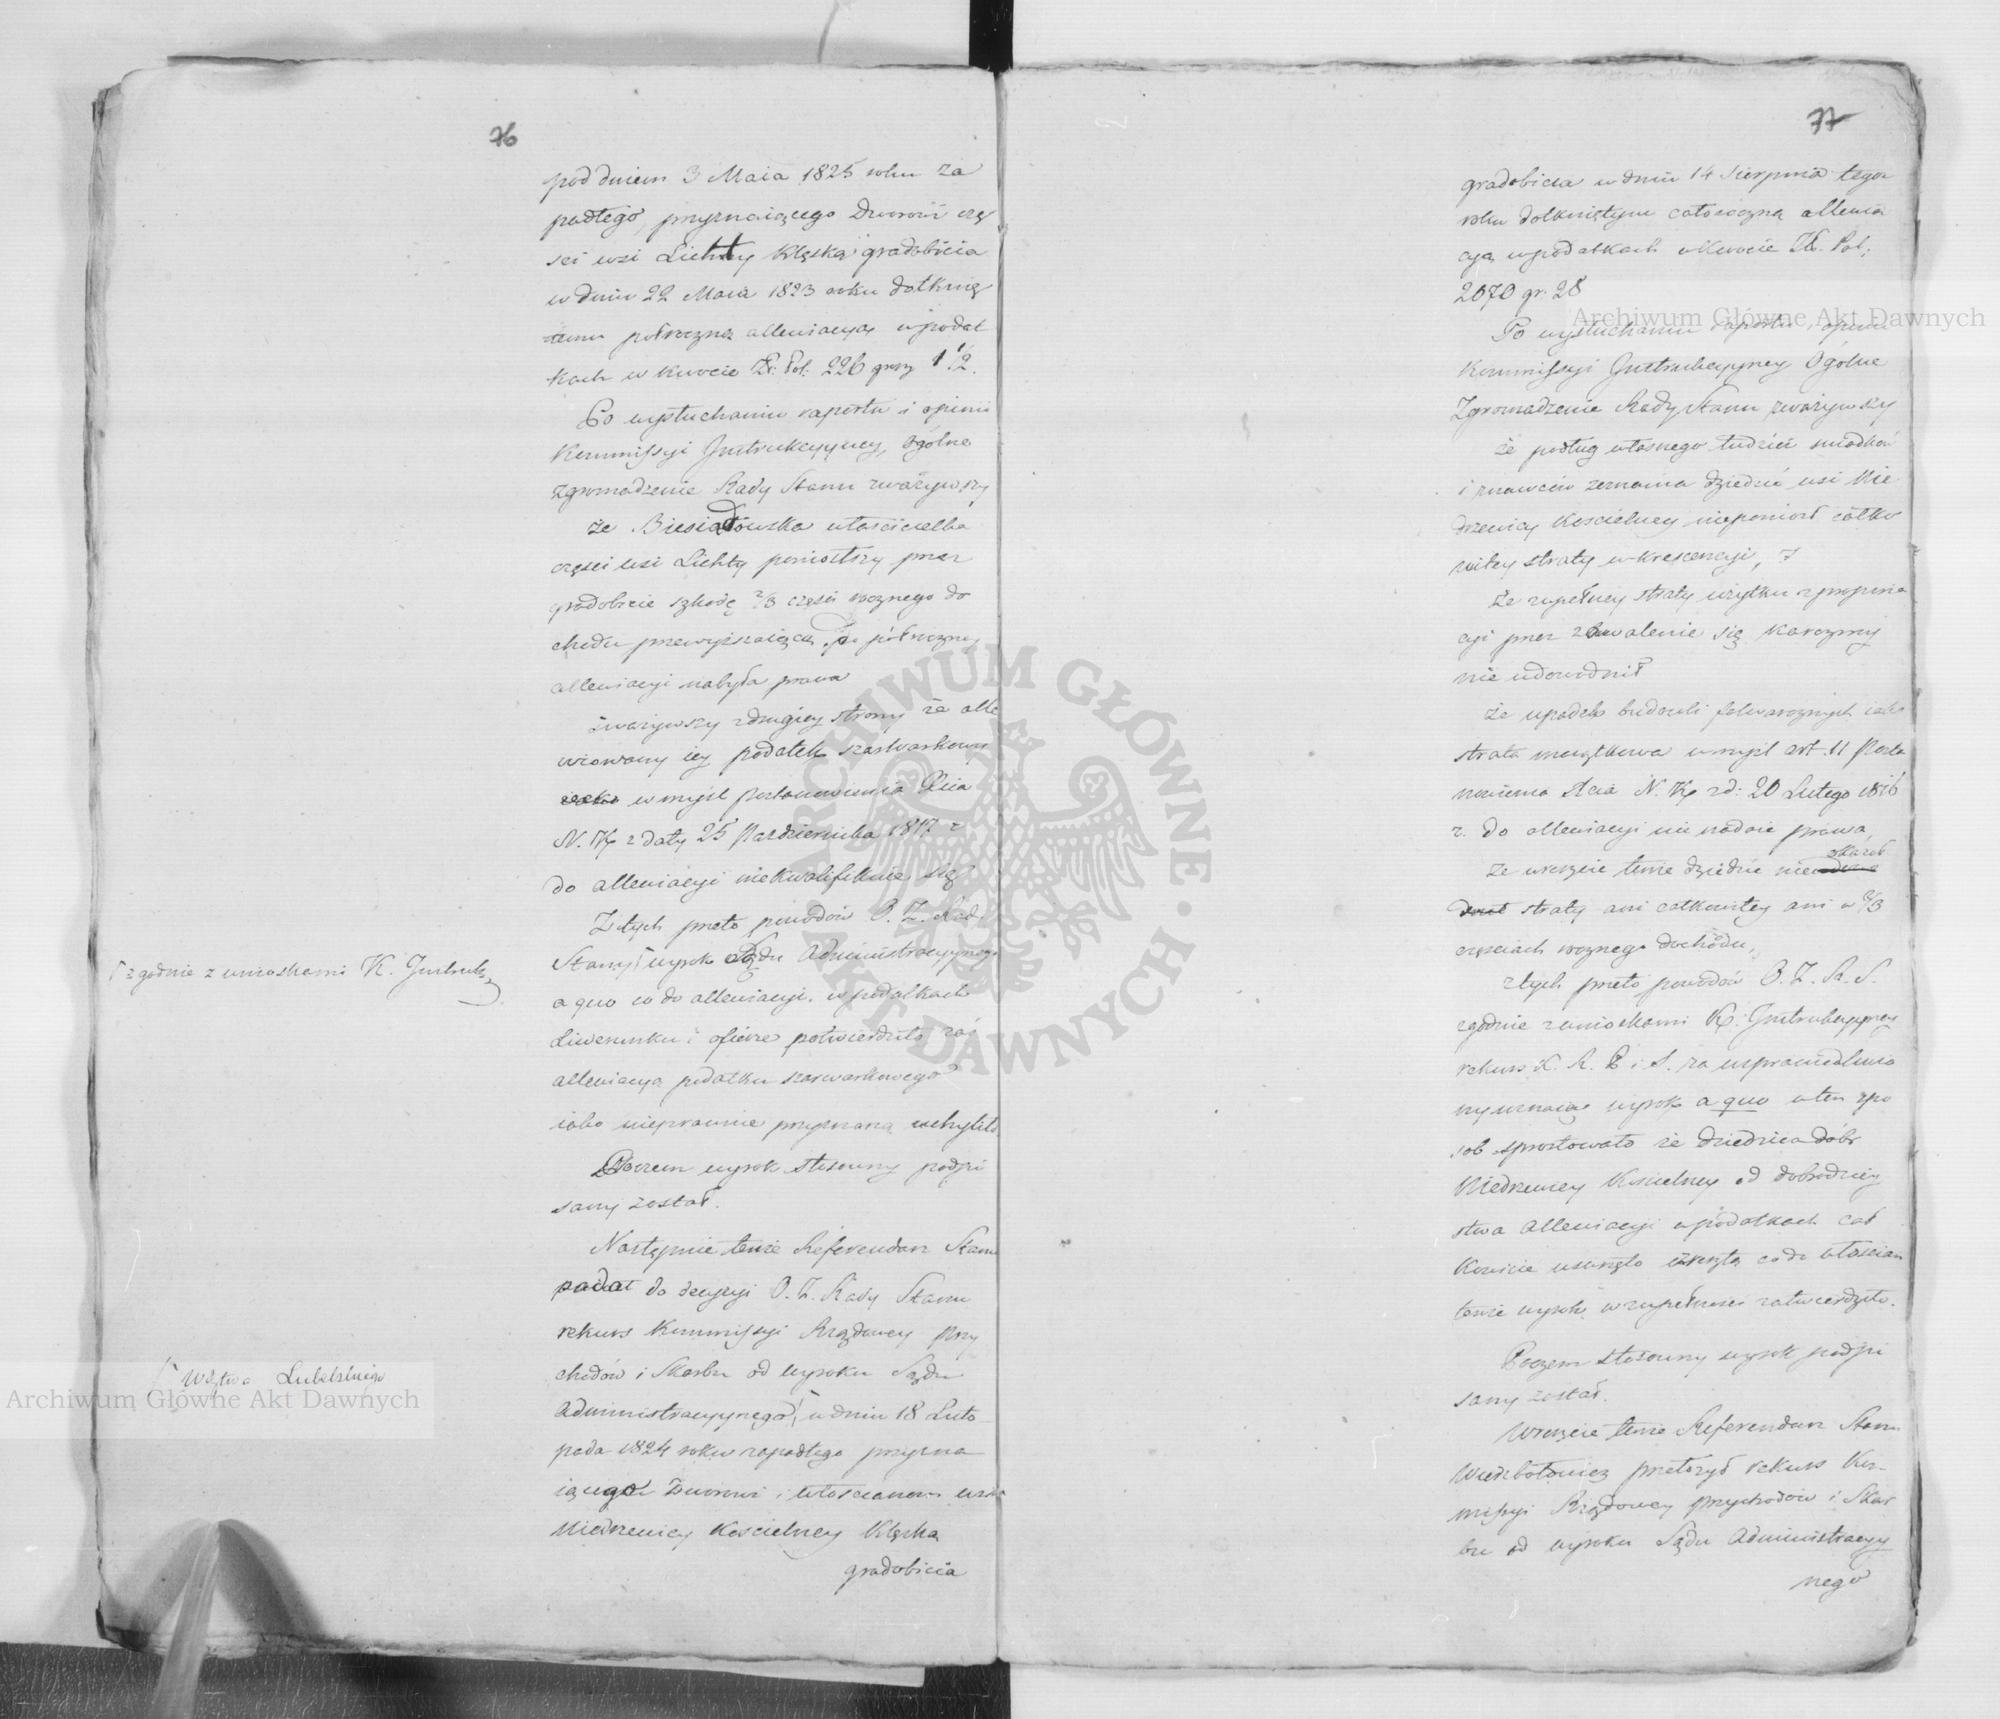 76
pod dniem 3 Maia 1825 roku za
padłego, przyznaiącego Dworowi czę
ści wsi Lichty klęską gradobicia
w dniu 22 Maia 1823 roku dotknię
temu półroczną allewiacyą w podat
kach w kwocie Zł: Pol: 226 groszy 1 1/2.
Po wysłuchaniu raportu i opinii
Kommissyi Instrukcyyney, Ogólne
Zgromadzenie Rady Stanu zważywszy
że Biesiadowska właścicielka
części wsi Lichty poniosłszy przez
gradobicie szkodę 2/3 części rocznego do
chodu przewyższaiącą, do półroczney
allewiacyi nabyła prawa
zważywszy z drugiey strony że alle
wiowany iey podatek szarwarkowy
w myśl postanowienia Xcia
N. Kr z daty 25 Października 1817 r
do allewiacyi niekwalifikuie się
Z tych przeto powodów O. Z. Rad.
Stanu ⌈ wyrok Sądu Administracyynego
⌈ zgodnie z wnioskami K. Instrukc.
a quo co do allewiacyi w podatkach
Liwerunku i ofiarze potwierdziło, zaś
allewiacyą podatku szarwarkowego
iako nieprawnie przyznaną uchyliło.
Poczem wyrok stosowny podpi
sany został.
Następnie tenże Referendarz Stanu
podał do decyzyi O. Z. Rady Stanu
rekurs Kommissyi Rządowey Przy
chodów i Skarbu od wyroku Sądu
⌈ Wdztwa Lubelskiego
Administracyynego ⌈ w dniu 18 Listo
pada 1824 roku zapadłego przyzna
iącego Dworowi i włościanom wsi
Niedrzwicy Kościelney klęską
gradobicia
77
gradobicia w dniu 14 Sierpnia tegoż
roku dotkniętym całoroczną allewia
cyą w podatkach w kwocie Zł. Pol:
2070 gr: 28
Po wysłuchaniu raportu i opinii
Kommissyi Instrukcyyney Ogólne
Zgromadzenie Rady Stanu zważywszy
że podług własnego tudzież świadków
i znawców zeznania dziedzic wsi Nie
drzwicy Kościelney nieponiósł całko
witey straty w krescencyi,
że zupełney straty użytku z propina
cyi przez zawalenie się karczmy
nie udowodnił
że upadek budowli folwarcznych iako
strata maiątkowa w myśl art. 11 Posta
nowienia Xcia N. Kr z d: 20 Lutego 1816
r. do allewiacyi nie nadaie prawa,
że wreszcie tenże dziedzic nie okazał
straty ani całkowitey ani w 2/3
częściach rocznego dochodu,
z tych przeto powodów O. Z. R. S.
zgodnie z wnioskami K. Instrukcyyney
rekurs K. R. P. i S. za usprawiedliwio
ny uznaiąc wyrok a quo w ten spo
sób sprostowało że dziedzica dóbr
Niedrzwicy Kościelney od dobrodziey
stwa allewiacyi w podatkach cał
kowicie usunęło zresztą co do włościan
tenże wyrok w zupełności zatwierdziło.
Poczem stosowny wyrok podpi
sany został.
Wreszcie tenże Referendarz Stanu
przełożył rekurs Kom
missyi Rządowey Przychodów i Skar
bu od wyroku Sądu Administracyy
nego
Archiwum Główne Akt Dawnych
Archiwum Główne Akt Dawnych
ARCHIWUM GŁÓWNE · AKT DAWNYCH ·